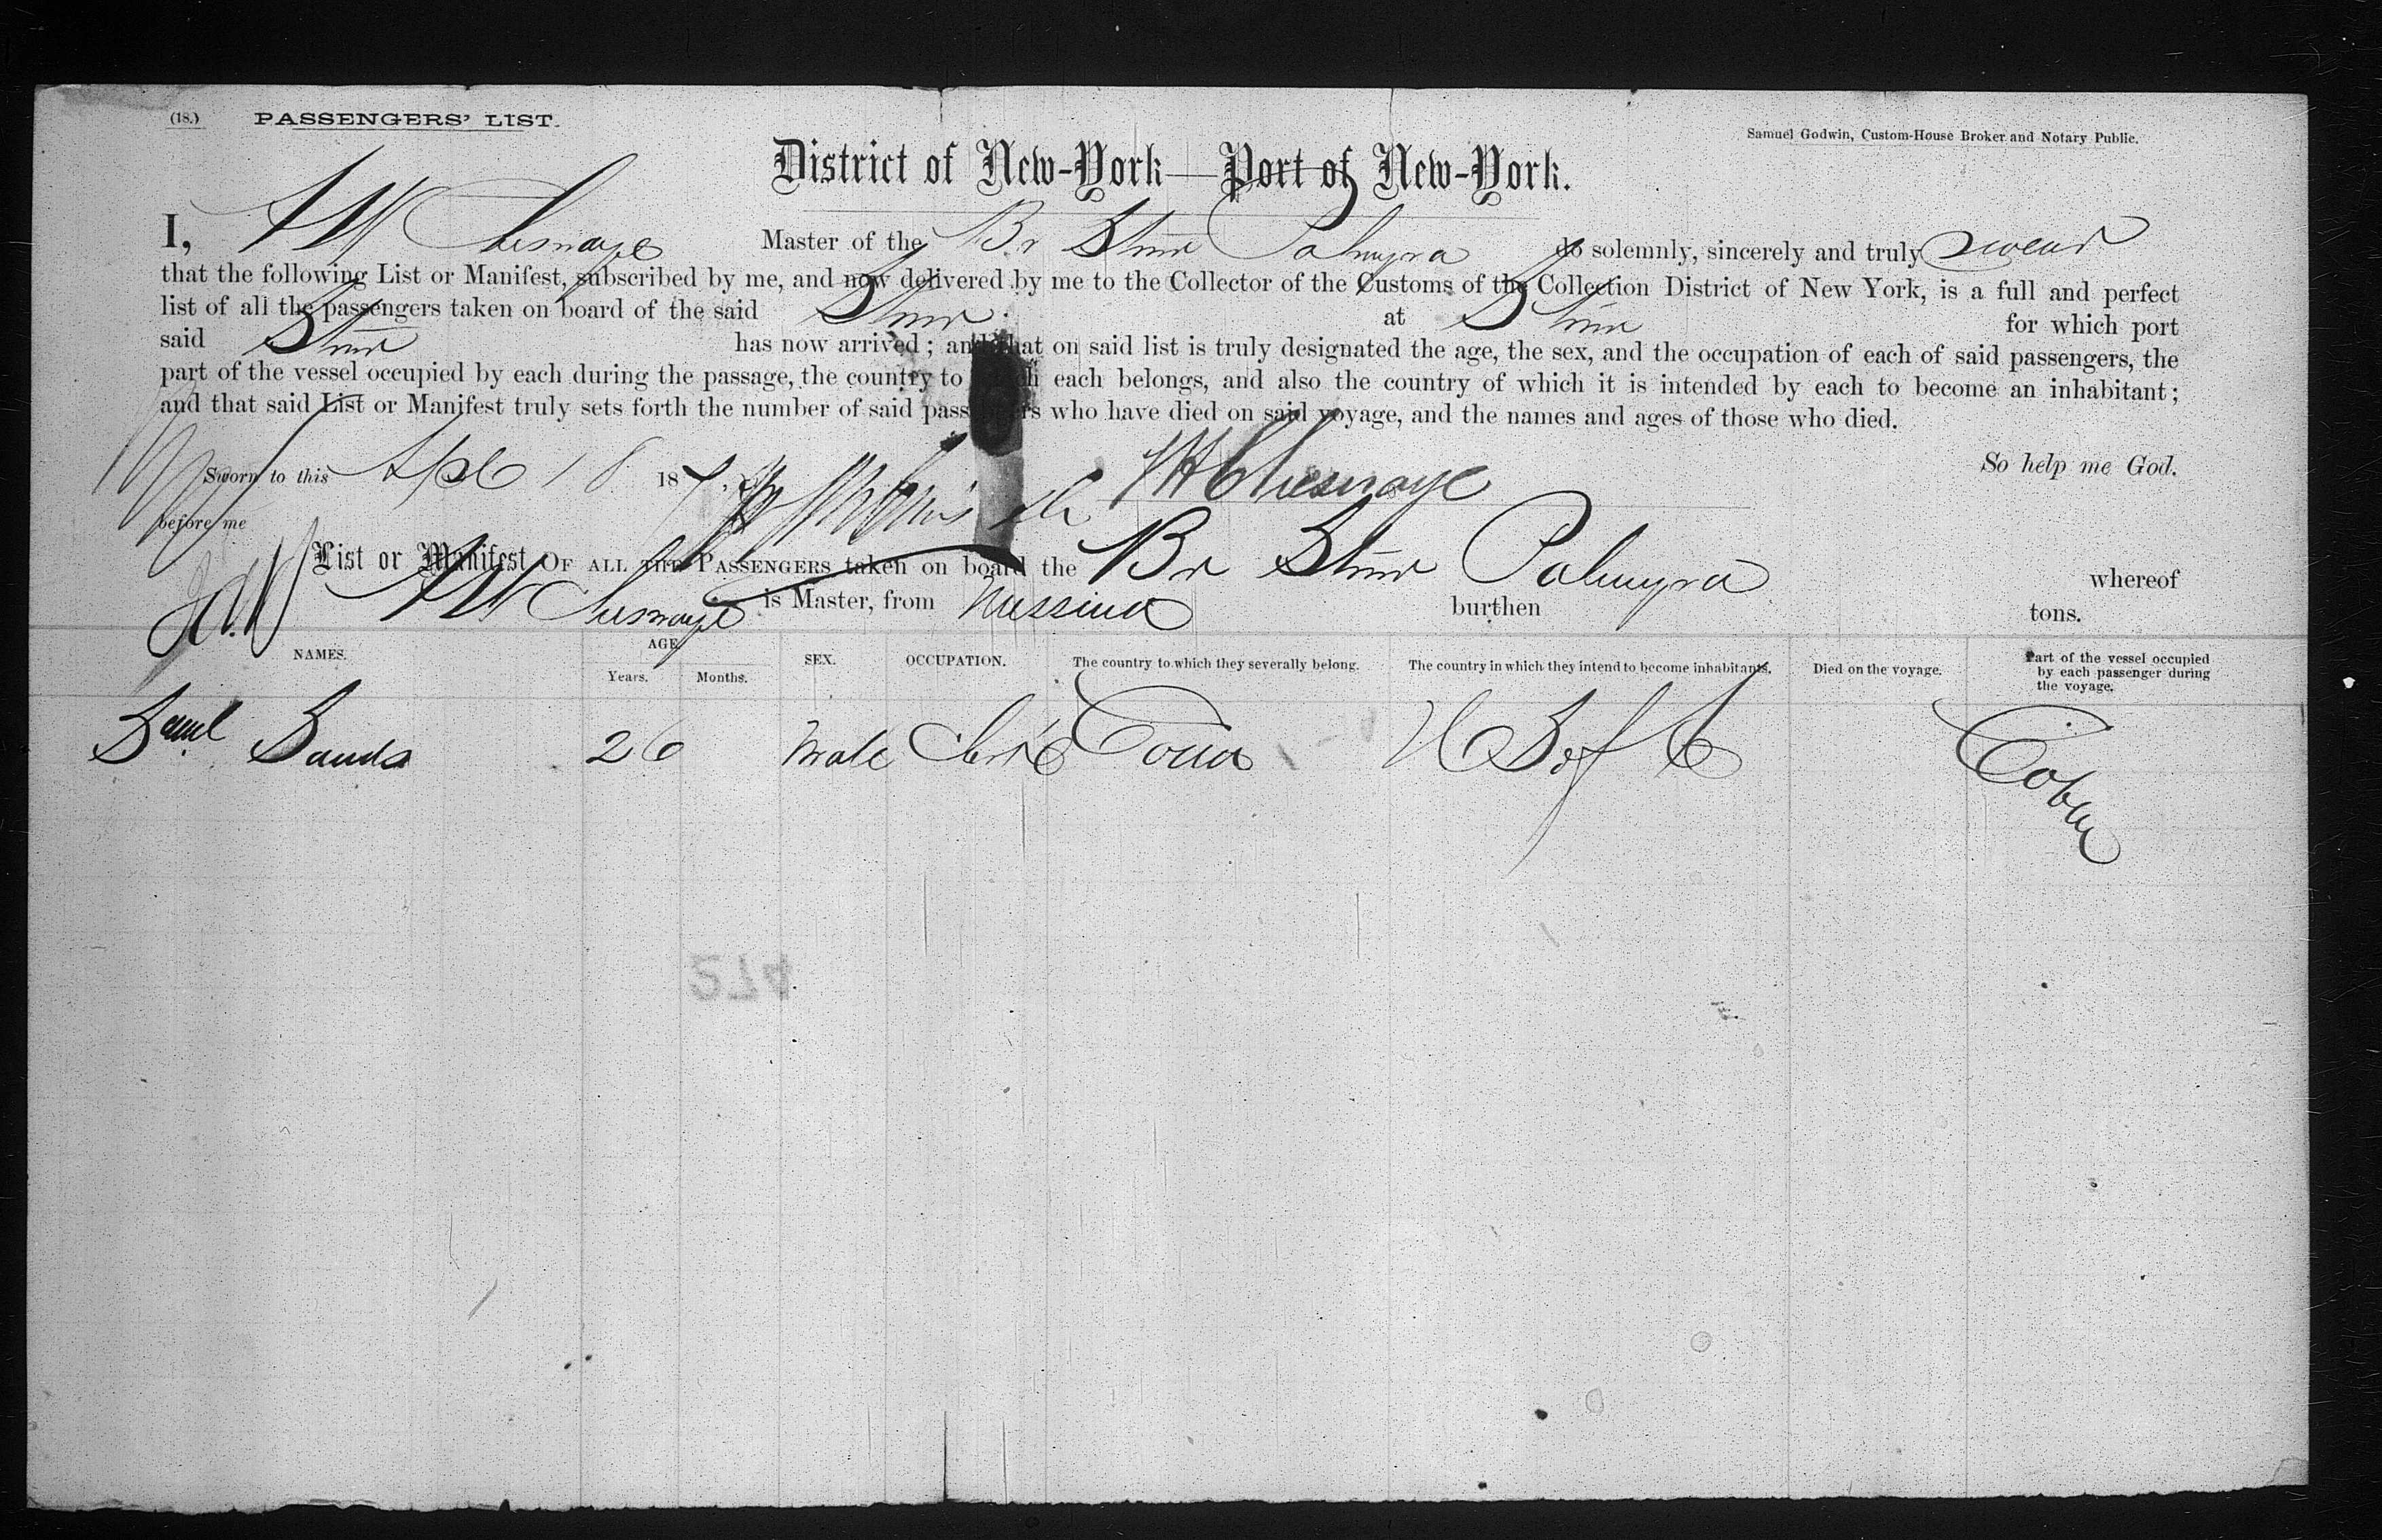 (18.) PASSENGERS' LIST.
Samuel Godwin, Custom-House Broker and Notary Public.
District of New-York—Port of New-York.
I, Master of the Br Stmr Palmyra do solemnly, sincerely and truly swear
that the following List or Manifest, subscribed by me, and now delivered by me to the Collector of the Customs of the Collection District of New York, is a full and perfect
list of all the passengers taken on board of the said Stmr at Stmr for which port
said Stmr has now arrived; and that on said list is truly designated the age, the sex, and the occupation of each of said passengers, the
part of the vessel occupied by each during the passage, the country to which each belongs, and also the country of which it is intended by each to become an inhabitant;
and that said List or Manifest truly sets forth the number of said passengers who have died on said voyage, and the names and ages of those who died.
So help me God.
Sworn to this Apl 18 187
before me
List or Manifest OF ALL THE PASSENGERS taken on board the Br Stmr Palmyra whereof
is Master, from Messina burthen tons.
NAMES. AGE. Years. Months. SEX. OCCUPATION. The country to which they severally belong. The country in which they intend to become inhabitants. Died on the voyage. Part of the vessel occupied by each passenger during the voyage.
Saml Sands 26 Male Clerk U S of A Cabin
274